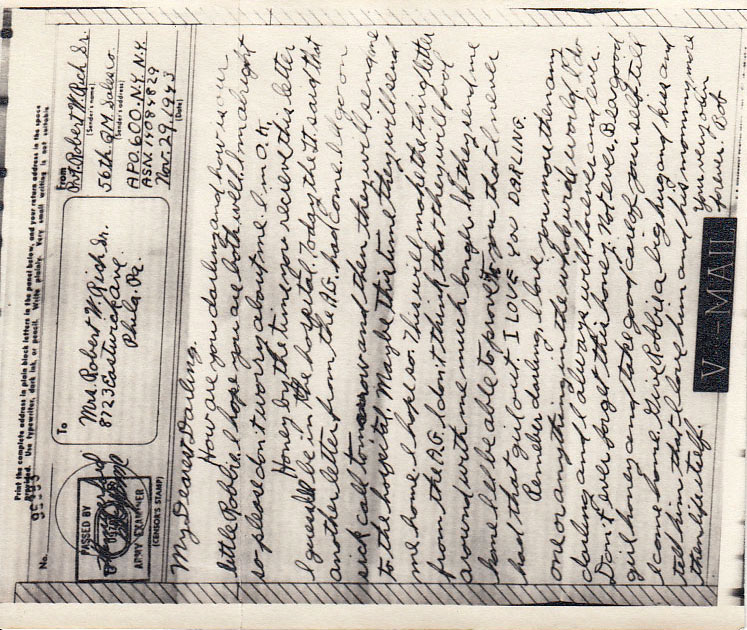 Print the complete address in plain block letters in the panel below, and your return address in the space
provided. Use typewriter, dark ink, or pencil. Write plainly. Very small writing is not suitable.
No.
PASSED BY
ARMY EXAMINER
(CENSOR'S STAMP)
To
Mrs. Robert W. Rich Sr.
8723 Eastwick Ave
Phila. Pa.
From
Pvt. Robert W. Rich Sr.
(Sender's name)
56th Q.M. Sales Co.
(Sender's address)
A.P.O. 600. N.Y. N.Y.
ASN. 13084829
Nov. 29, 1943
(Date)
My Dearest Darling.
How are you darling and how is our
little Robbie. I hope you are both well. I'm alright
so please don't worry about me. I'm O.K.
Honey by the time you recieve this letter
I guess I'll be in the hospital. Today the Lt. said that
another letter from the A.G. had come. I'll go on
sick call tomorrow and then they will send me
to the hospital. Maybe this time they will send
me home. I hope so. This will make the third letter
from the A.G. I don't think that they will fool
around with me much longer. If they send me
home I'll be able to prove to you that I never
had that girl out. I LOVE YOU DARLING.
Remeber darling, I love you more then any
one or anything in the whole wide world. I do
darling and I always will forever and ever.
Don't ever forget this honey. Not ever. Be a good
girl honey and take good care of yourself till
I come home. Give Robbie a big hug and kiss and
tell him that I love him and his mommy more
then life itself.
Your very own
forever. Bob
V--MAIL